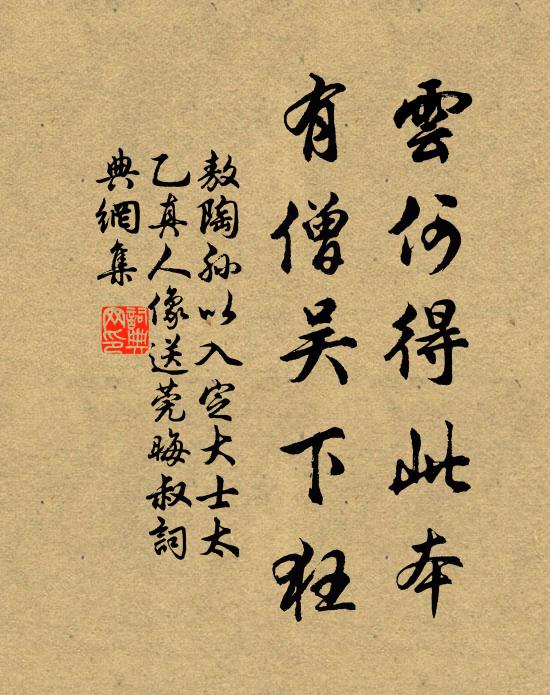 雲何得此本
有僧吴下狂
敖陶孙以入定大士太
乙真人像送莞晦叔詞
典網集
詞典
网印